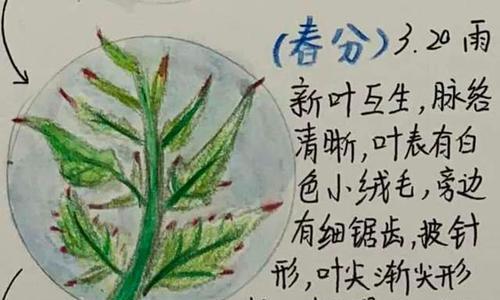 (春分) 3.20 雨
新叶互生,脉络
清晰,叶表有白
色小绒毛,旁边
有细锯齿,披针
形,叶尖渐尖形